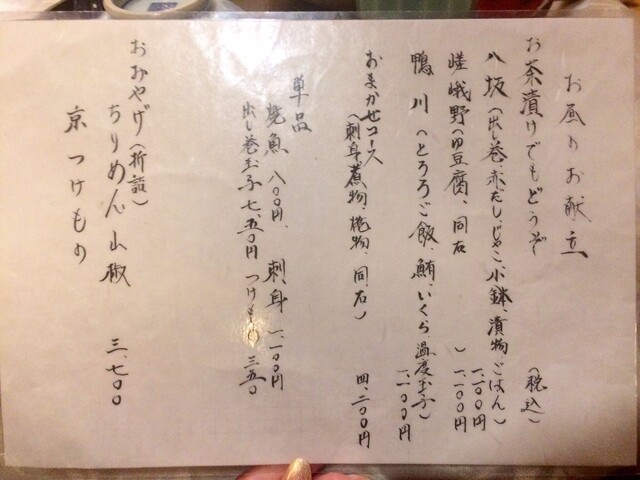 お昼のお献立
お茶漬けでもどうぞ (税込)
八坂(出し巻、赤だし、じゃこ、小鉢、漬物、ごはん) 一、一〇〇円
嵯峨野(ゆ豆腐、同右) 一、一〇〇円
鴨川(とろろご飯、鮪、いくら、温度玉子) 一、一〇〇円
おまかせコース
(刺身、煮物、焼物、同、右) 四、二〇〇円
単品
焼魚 八〇〇円、 刺、身 一、一〇〇円
出し巻玉子 七、五〇円 つけもの 三五〇
おみやげ(折詰)
ちりめん山椒
京つけもの 三、七〇〇